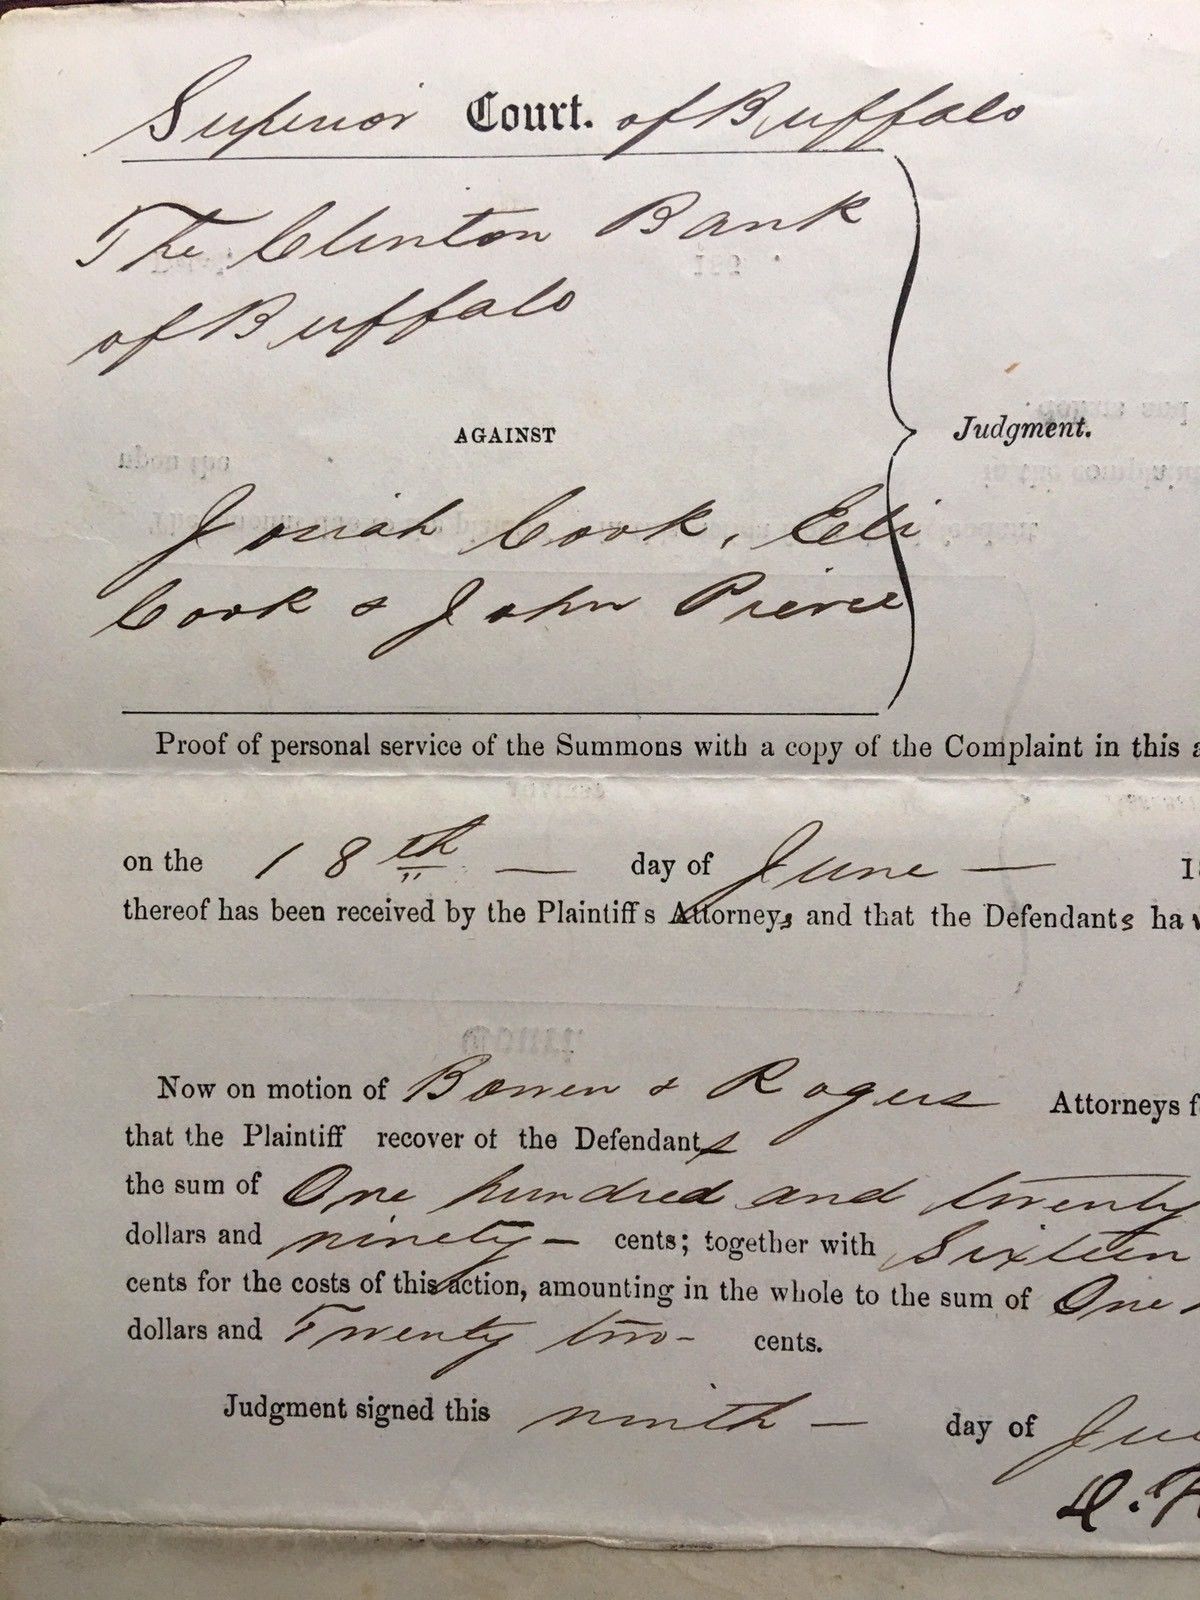 Superior Court. of Buffalo
The Clinton Bank
of Buffalo
AGAINST
Judgment.
Josiah Cook, Eli
Cook & John Pierce
Proof of personal service of the Summons with a copy of the Complaint in this a
on the 18th — day of June — 18
thereof has been received by the Plaintiffs Attorneys and that the Defendants hav
Now on motion of Bowen & Rogers Attorneys f
that the Plaintiff recover of the Defendants
the sum of One hundred and twenty
dollars and ninety — cents; together with Sixteen
cents for the costs of this action, amounting in the whole to the sum of One
dollars and Twenty two - cents.
Judgment signed this ninth — day of Ju